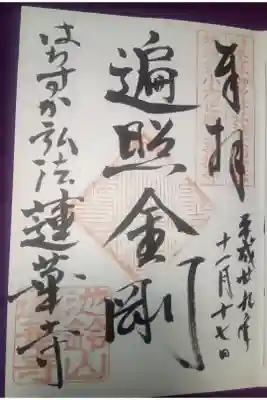 奉拝
平成廿九年
十一月十七日
遍照金剛
はちすか弘法 蓮華寺
池鈴山
蓮華寺